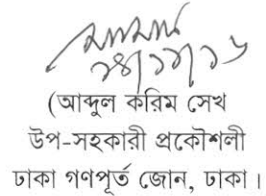 ২৪/১১/১৬
(আব্দুল করিম সেখ
উপ-সহকারী প্রকৌশলী
ঢাকা গণপূর্ত জোন, ঢাকা।